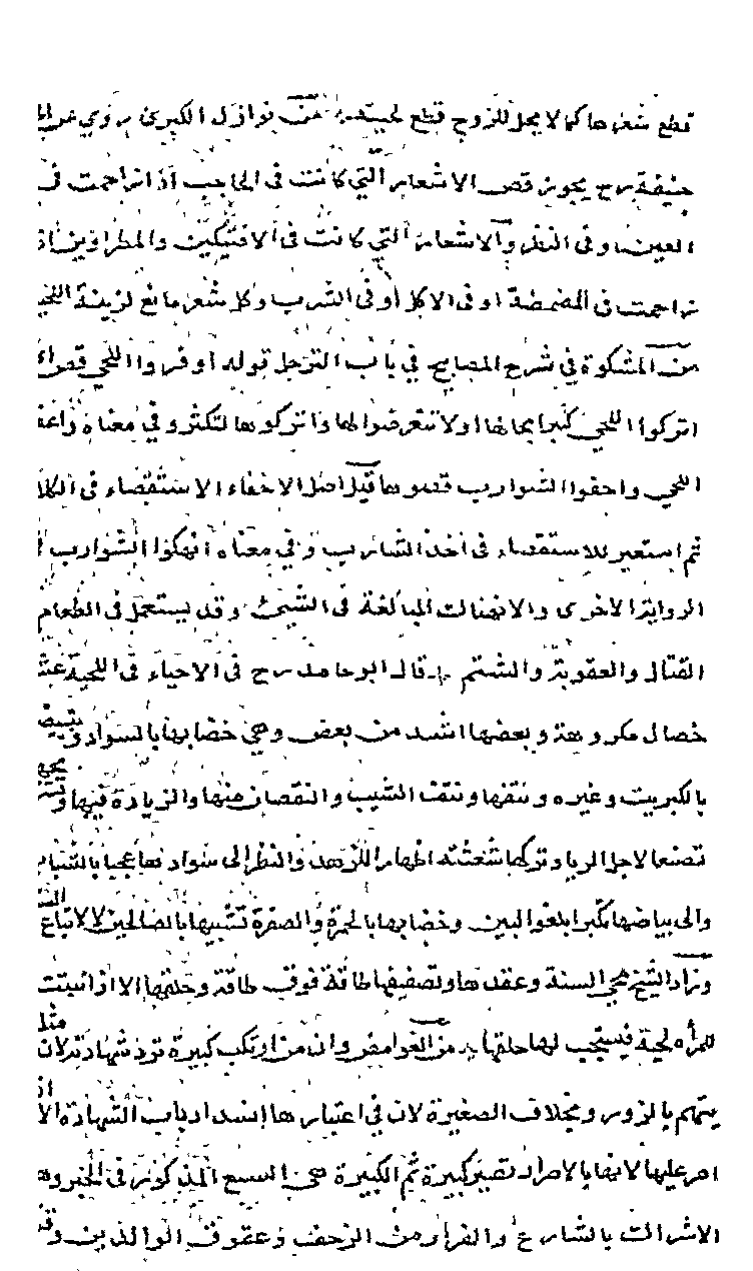 قطع شعرها كما لا يحل للزوج قطع لحيته من نوازل الكبرى روي عن
حنيفة رح يجوز قص الاشعار التي كانت في الحاجب اذا تزاحمت في
العين وفي النظر والاشعار التي كانت في الافنيكين والمطراوين اذ
تزاحمت في المضمضة او في الاكل او في الشرب وكل شعر مانع لزينة
من المشكوة في شرح المصابيح في باب الترجل قوله اوفروا اللحى
اتركوا اللحى كثيرا بحالها ولا تتعرضوا لها واتركوها لتكثر وفي معناه
اللحى واحفوا الشوارب قصوها قيل اصل الاحفاء الاستقصاء في
ثم استعير للاستقصاء في اخذ الشارب وفي معناه انهكوا الشوارب
الرواية الاخرى والانهاك المبالغة في الشيئ وقد يستعمل في الطعام
القتال والعقوبة والشتم قال ابو حامد رح في الاحياء في اللحية
خصال مكروهة وبعضها اشد من بعض وهي خضابها بالسواد وتبييضها
بالكبريت وغيره ونتفها ونتف الشيب والنقصان منها والزيادة فيها
تصنعا لاجل الرياء وتركها شعثة اظهارا للزهد والنظر الى سوادها عجبا بالشباب
والى بياضها تكبرا بعلو السن وخضابها بالحمرة والصفرة تشبيها بالصالحين لا لاتباع
وزاد الشيخ محي السنة وعقدها وتصفيفها طاقة فوق طاقة وحلقها الا اذا نبتت
للمرأة لحية فيستحب لها حلقها من الغوامض وان من ارتكب كبيرة ترد شهادته لان مثله
يتهم بالزور وبخلاف الصغيرة لان في اعتبارها انسداد باب الشهادة الا اذا
اصر عليها لانها بالاصرار تصير كبيرة ثم الكبيرة هي السبع المذكور في الخبر وهو
الاشراك بالله تع والفرار من الزحف وعقوق الوالدين